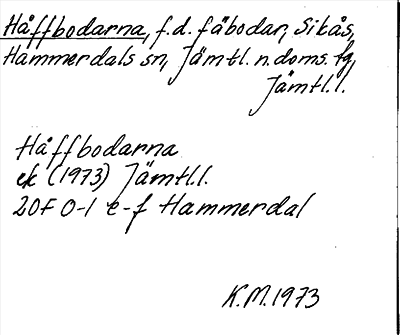 Håffbodarna, f.d. fäbodar, Sikås,
Hammerdals sn, Jämtl. n. doms. tg,
Jämtl.l.
Håffbodarna
ek (1973) Jämtl.l.
20F 0-1 e-f Hammerdal
K.M. 1973